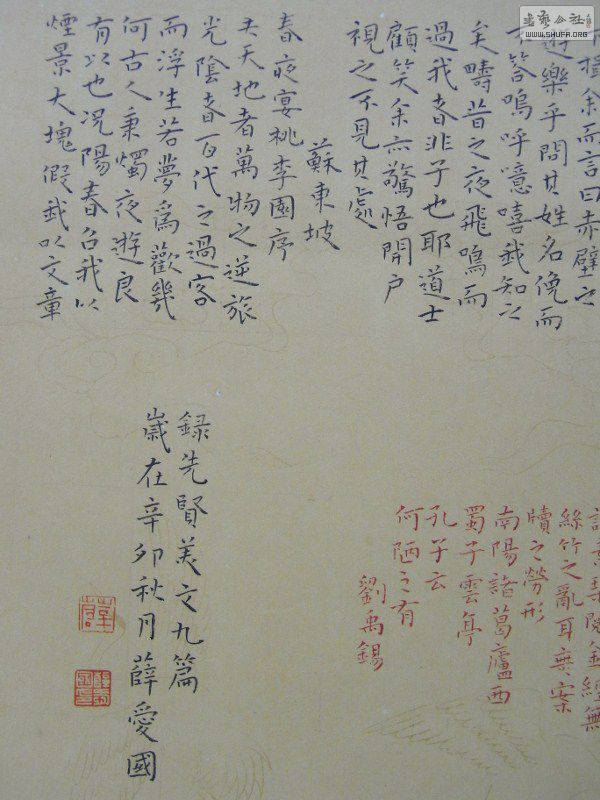 揖余而言曰赤壁之
遊樂乎問其姓名俛而
不答嗚呼噫嘻我知之
矣疇昔之夜飛鳴而
過我者非子也耶道士
顧笑余亦驚悟開戶
視之不見其處
蘇東坡
春夜宴桃李園序
夫天地者萬物之逆旅
光陰者百代之過客
而浮生若夢為歡幾
何古人秉燭夜游良
有以也況陽春召我以
煙景大塊假我以文章
素琴閱金經無
絲竹之亂耳無案
牘之勞形
南陽諸葛廬西
蜀子雲亭
孔子云
何陋之有
劉禹錫
錄先賢美文九篇
歲在辛卯秋月薛愛國
WWW.SHUFA.ORG